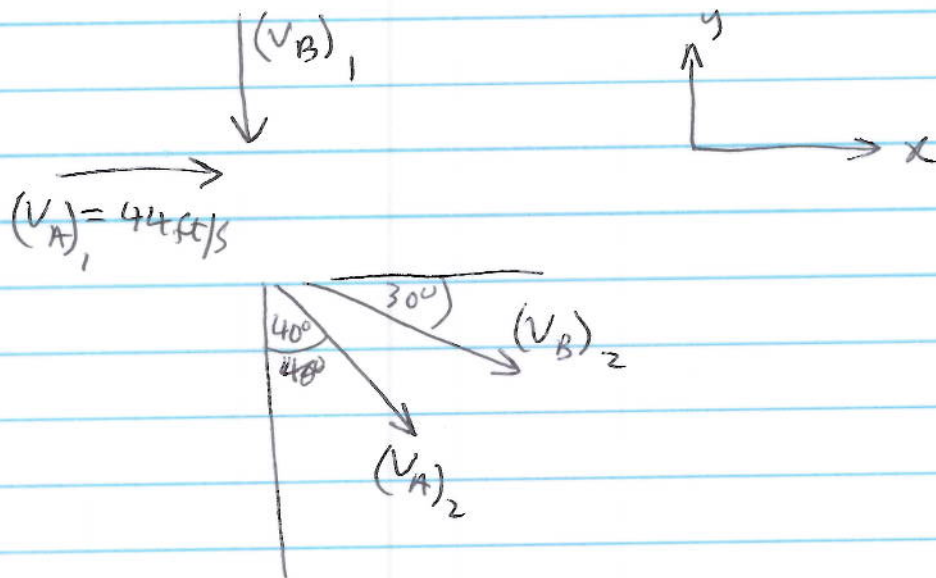 (V_B)_1
y
x
(V_A)_1 = 44 ft/s
30°
40°
(V_B)_2
40°
(V_A)_2